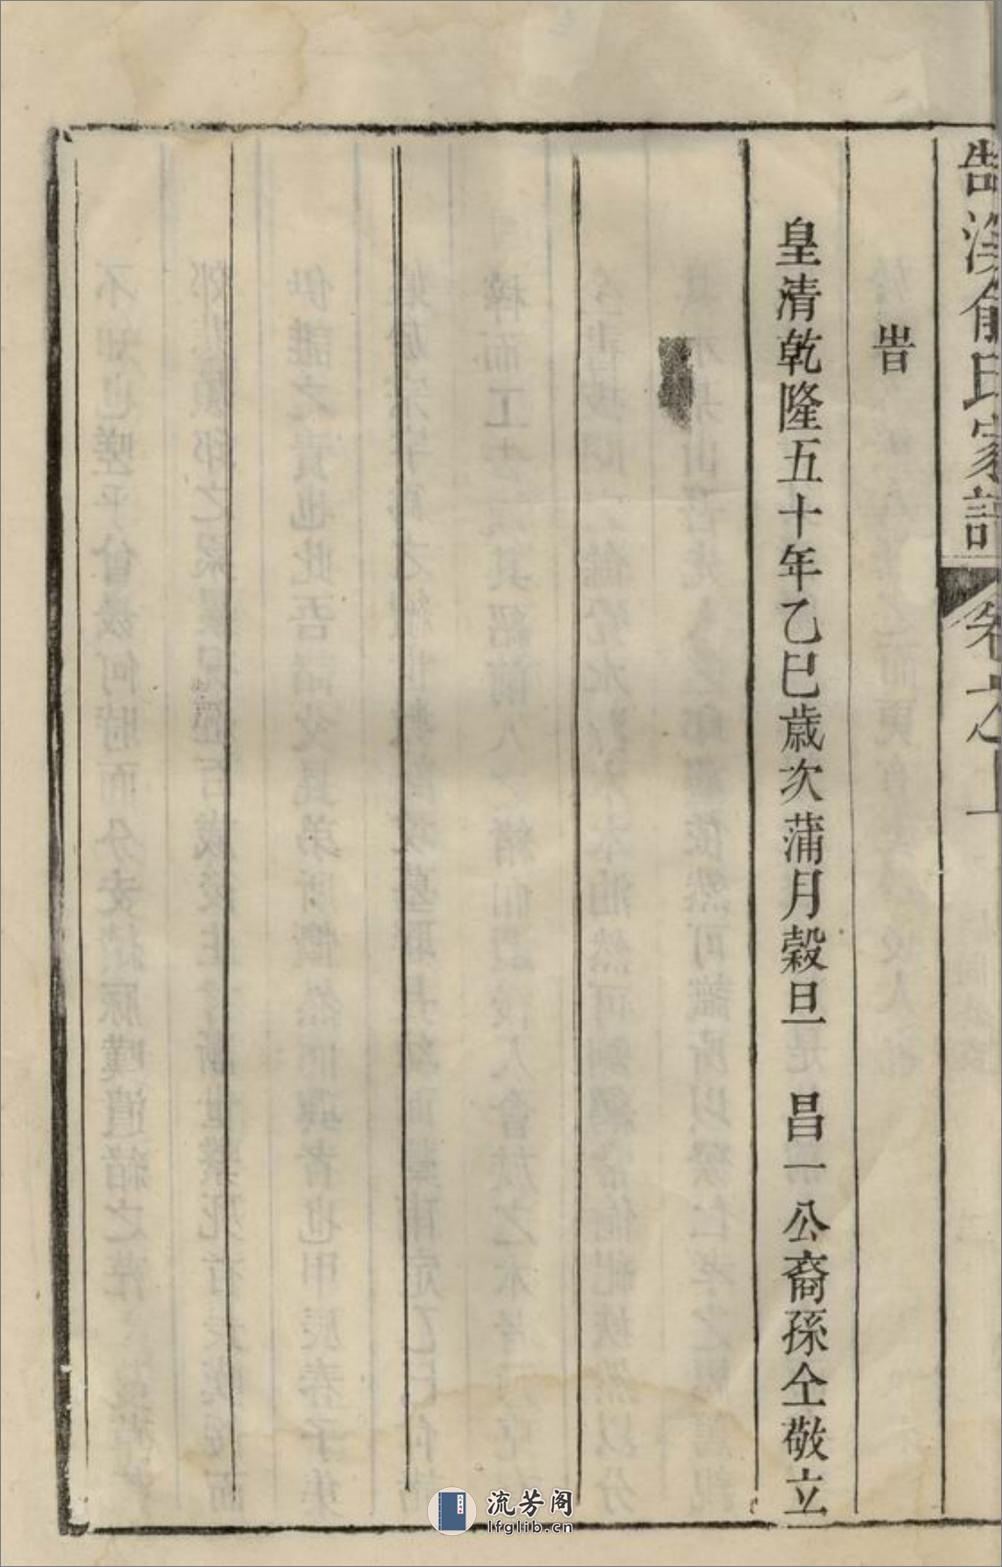 溪俞氏家譜 卷之上
旹
皇清乾隆五十年乙巳歲次蒲月穀旦 昌一公裔孫仝敬立
流芳阁
lfglib.cn